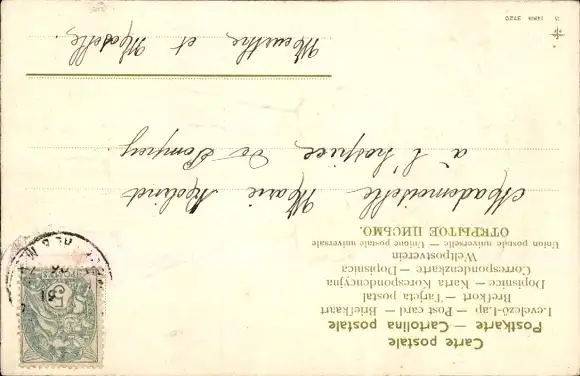 Carte postale
Postkarte — Cartolina postale
Levelező-Lap — Post card — Briefkaart
Brefkort — Tarjeta postal
Dopisnice — Karta Korespondencyjna
Correspondenzkarte — Dopisnica
Weltpostverein
Union postale universelle — Unione postale universale
ОТКРЫТОЕ ПИСЬМО.
Mademoiselle Marie Molinet
à l'hospice de Pompey
Meurthe et Moselle